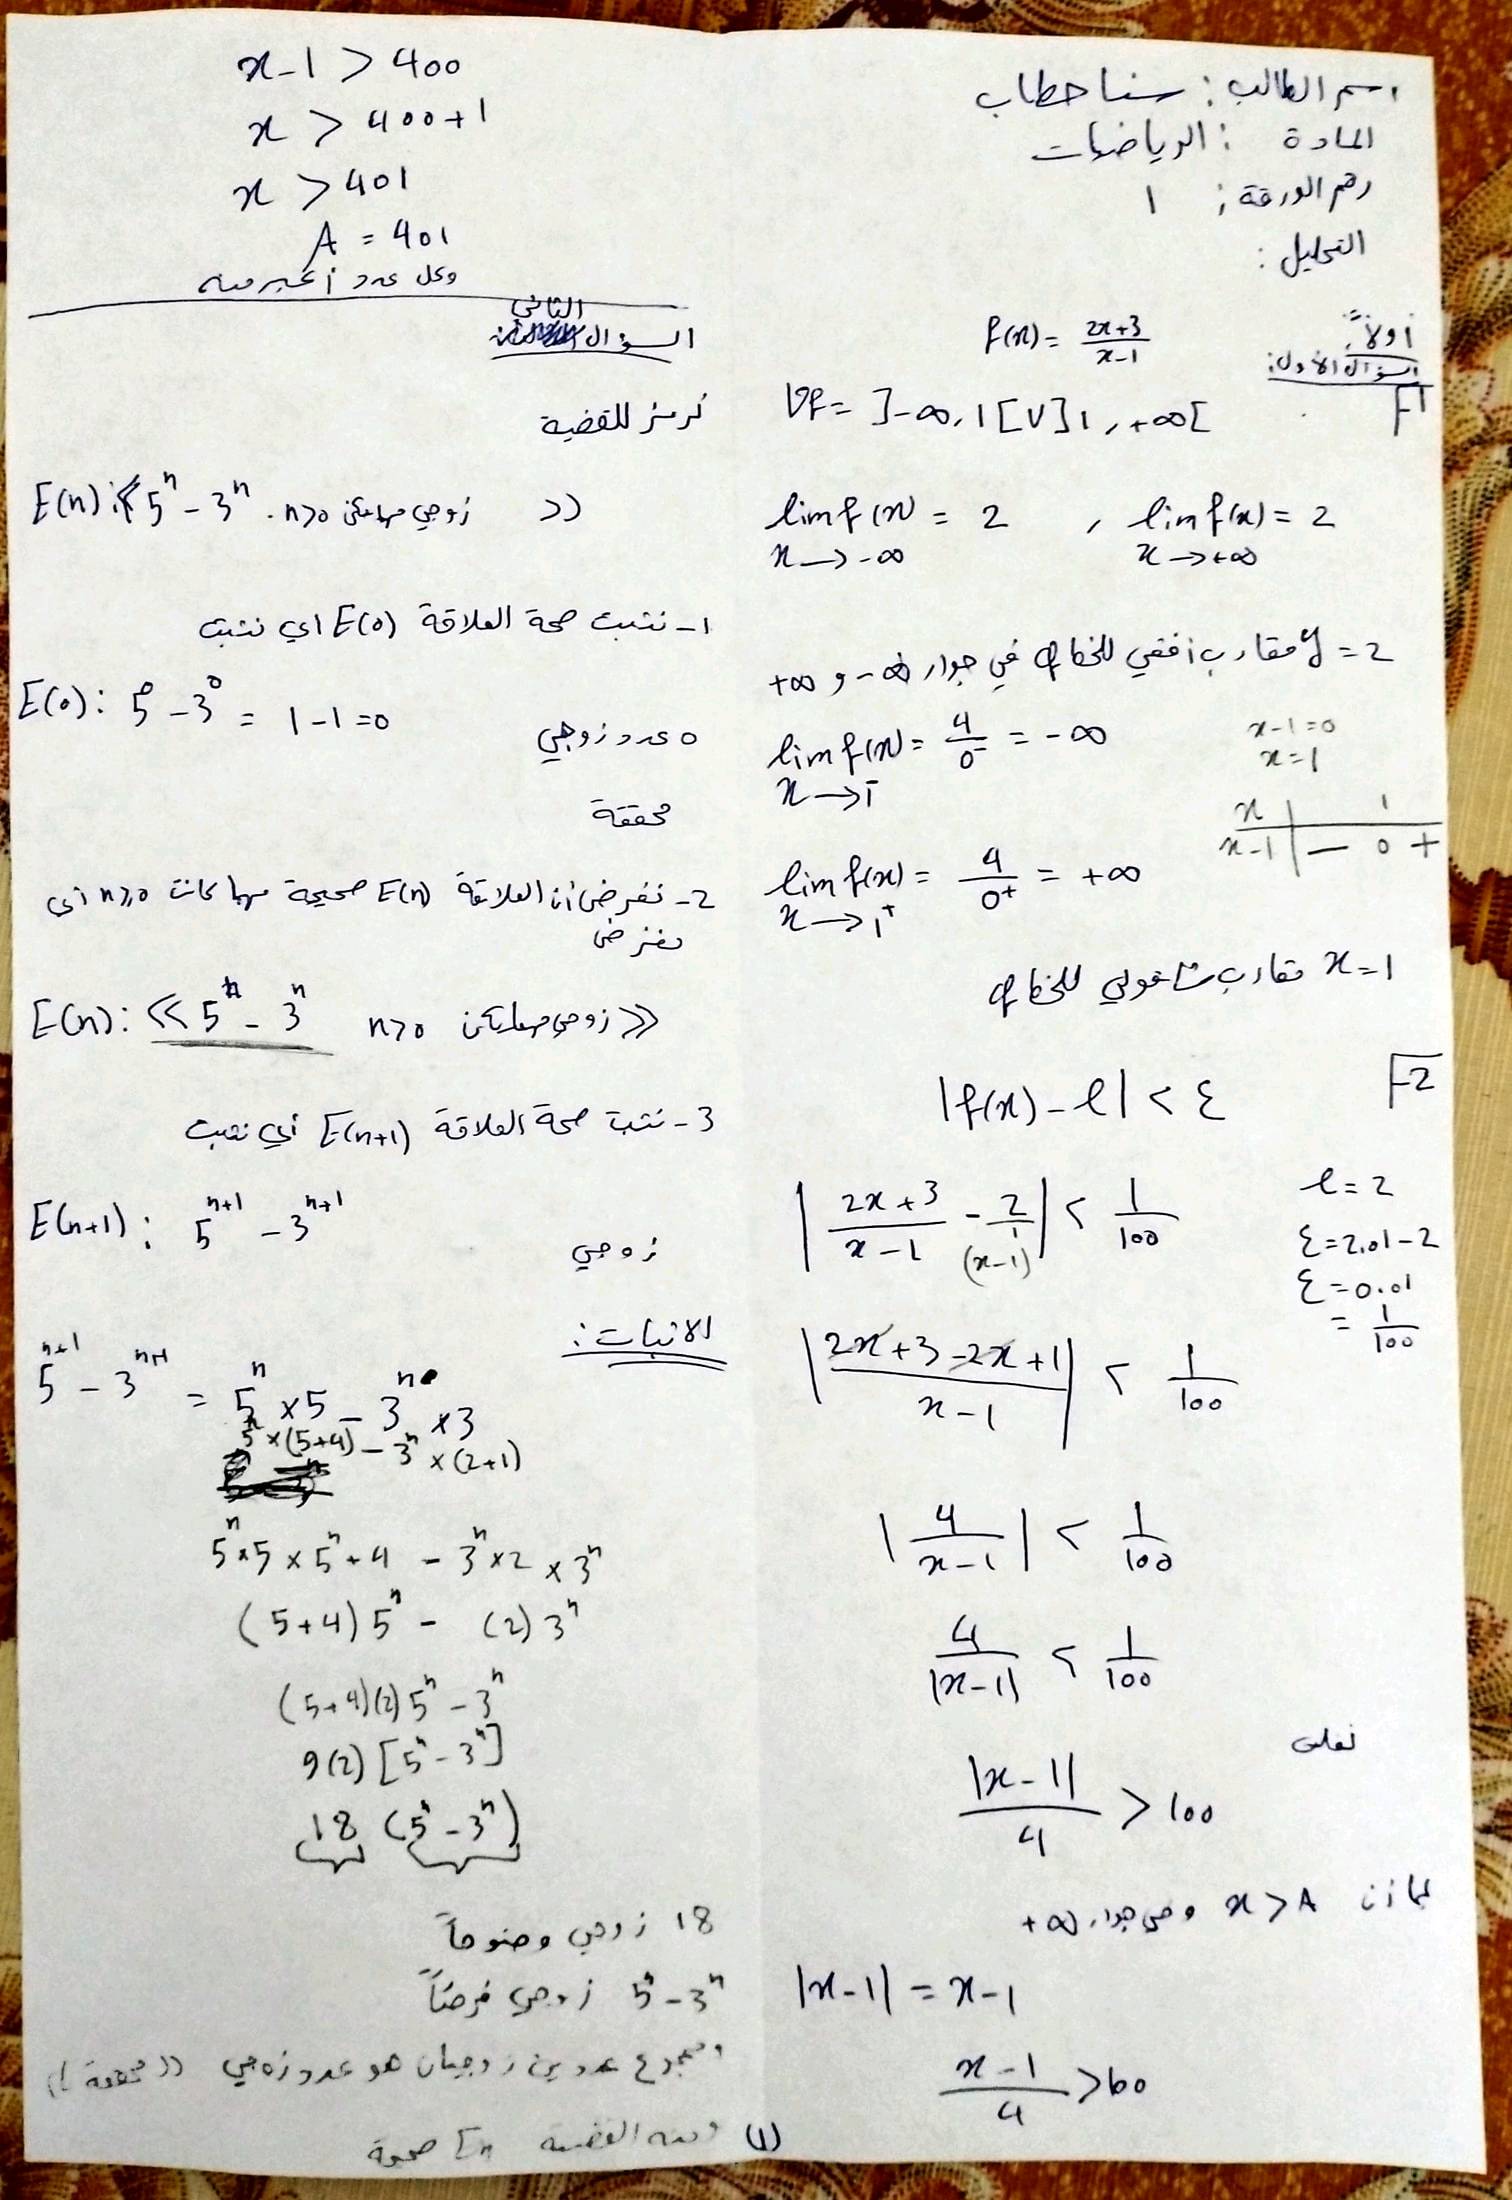 اسم الطالب : سنا حطاب
المادة : الرياضيات
رقم الورقة : 1
التحليل :
أولاً :
السؤال الأول :
f(x) = \frac{2x+3}{x-1}
F1
Df = ]-∞, 1[ U ]1, +∞[
lim f(x) = 2 , lim f(x) = 2
x → -∞ x → +∞
y = 2 مقارب أفقي للخط في جوار -∞ و +∞
x-1=0
x=1
lim f(x) = \frac{4}{0^-} = -∞
x → 1^-
x | 1
x-1 | - 0 +
lim f(x) = \frac{4}{0^+} = +∞
x → 1^+
x=1 مقارب شاقولي للخط
F2
|f(x) - l| < ε
l = 2
ε = 2.01 - 2
ε = 0.01
= \frac{1}{100}
|\frac{2x+3}{x-1} - \frac{2}{1}| < \frac{1}{100}
(x-1)
|\frac{2x+3-2x+1}{x-1}| < \frac{1}{100}
|\frac{4}{x-1}| < \frac{1}{100}
\frac{4}{|x-1|} < \frac{1}{100}
نقلب
\frac{|x-1|}{4} > 100
بما أن x > A وفي جوار +∞
|x-1| = x-1
\frac{x-1}{4} > 100
(1)
x-1 > 400
x > 400+1
x > 401
A = 401
وكل عدد أكبر منه
السؤال الثاني :
نرمز للقضية
E(n): « 5^n - 3^n زوجي مهما تكن n>0 »
1- نثبت صحة العلاقة E(0) اي نثبت
E(0): 5^0 - 3^0 = 1-1=0
0 عدد زوجي
محققة
2- نفرض أن العلاقة E(n) صحيحة مهما كانت n≥0 أي
نفرض
E(n): « 5^n - 3^n زوجي مهما تكن n>0 »
3- نثبت صحة العلاقة E(n+1) أي نثبت
E(n+1): 5^{n+1} - 3^{n+1} زوجي
الاثبات :
5^{n+1} - 3^{n+1} = 5^n × 5 - 3^n × 3
5^n × (5+4) - 3^n × (2+1)
5^n × 5 × 5^n + 4 - 3^n × 2 × 3^n
(5+4) 5^n - (2) 3^n
(5+4)(2) 5^n - 3^n
9(2) [5^n - 3^n]
18 (5^n - 3^n)
18 زوجي وضوحاً
5^n - 3^n زوجي فرضاً
ومجموع عددين زوجيان هو عدد زوجي (( محققة ))
ومنه القضية En صحيحة